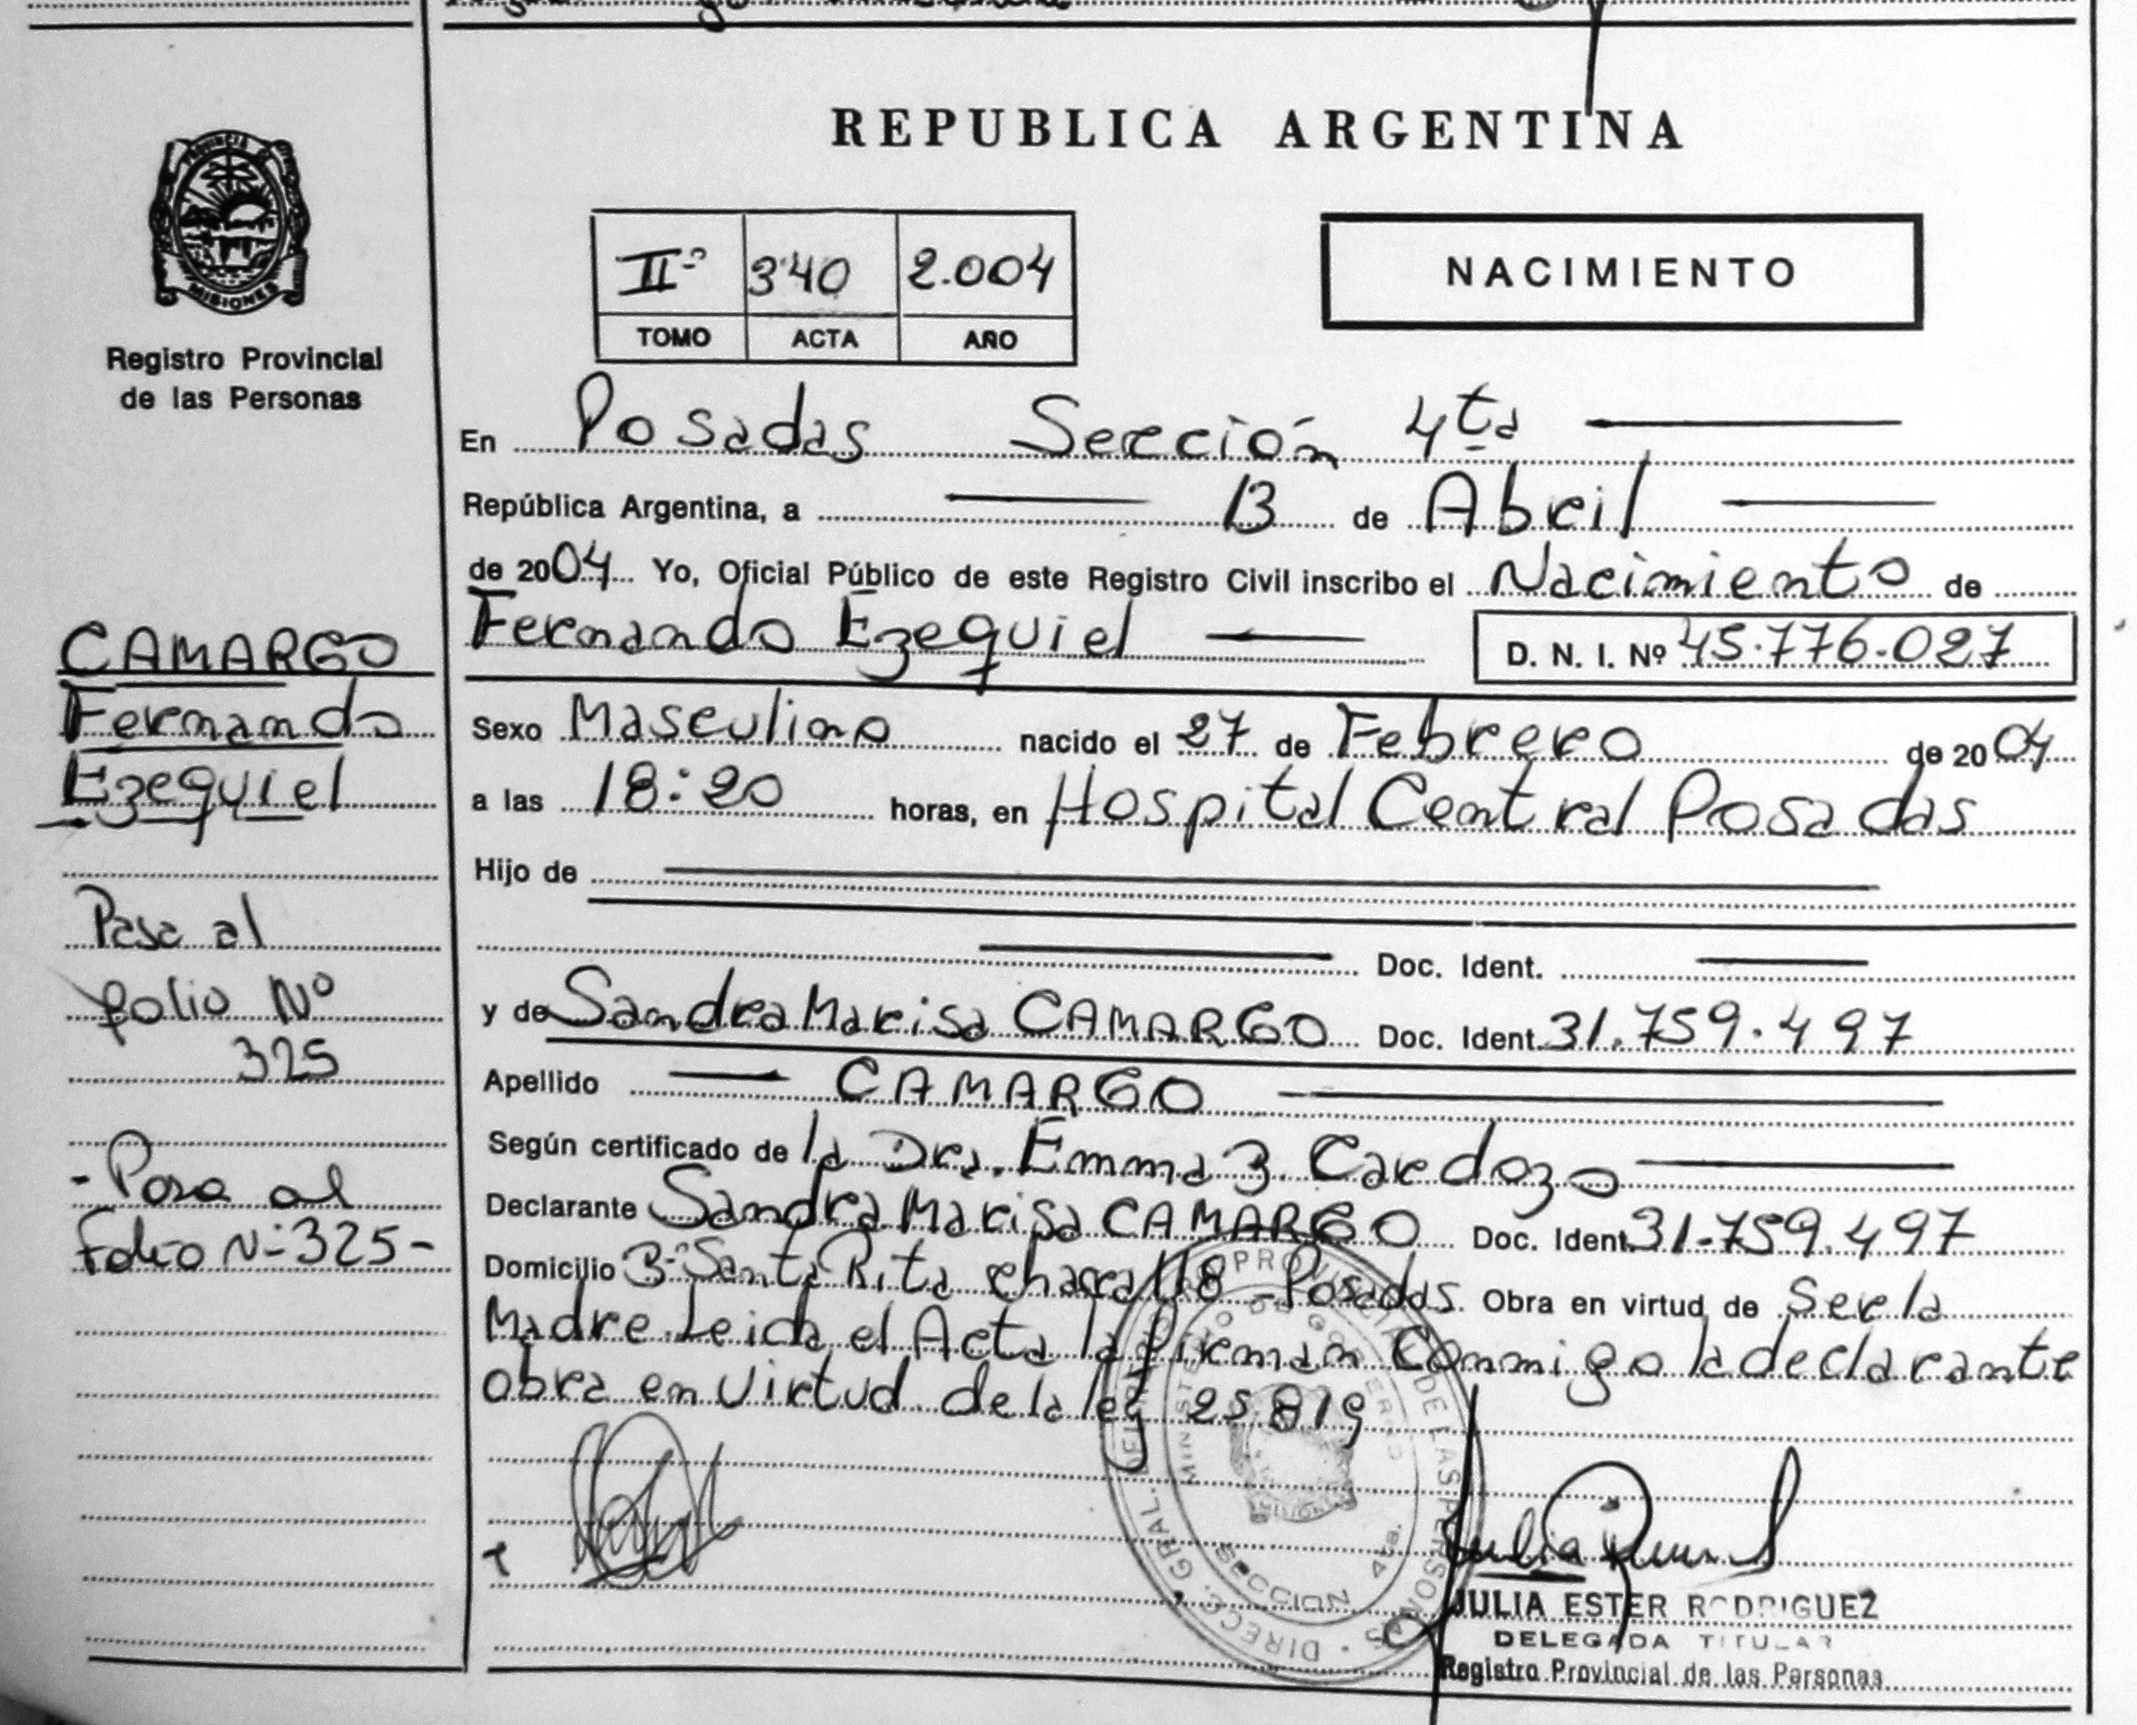 REPUBLICA ARGENTINA
PROVINCIA DE
MISIONES
Registro Provincial
de las Personas
IIº 340 2.004
TOMO ACTA AÑO
NACIMIENTO
En Posadas Sección 4ta
República Argentina, a 13 de Abril
de 2004 Yo, Oficial Público de este Registro Civil inscribo el Nacimiento de
Fernando Ezequiel D. N. I. Nº 45.776.027
Sexo Masculino nacido el 27 de Febrero de 2004
a las 18:20 horas, en Hospital Central Posadas
Hijo de
Doc. Ident.
y de Sandra Marisa CAMARGO Doc. Ident. 31.759.497
Apellido CAMARGO
Según certificado de la Dra. Emma Cardozo
Declarante Sandra Marisa CAMARGO Doc. Ident. 31.759.497
Domicilio Bº Santa Rita chacra 118 - Posadas. Obra en virtud de Ser la
Madre. Leida el Acta la firman Conmigo la declarante
obra en Virtud de la ley 25819
CAMARGO
Fernando
Ezequiel
Pasa al
folio Nº
325
- Pasa al
Folio Nº 325 -
DIRECC. GRAL. DEL REGISTRO PROVINCIAL DE LAS PERSONAS
MINISTERIO DE GOBIERNO
SECCION 4ta.
JULIA ESTER RODRIGUEZ
DELEGADA TITULAR
Registro Provincial de las Personas